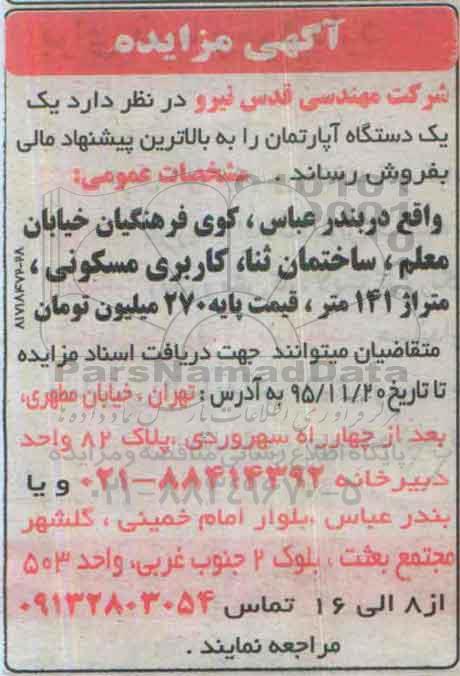 آگهی مزایده
شرکت مهندسی قدس نیرو در نظر دارد یک
یک دستگاه آپارتمان را به بالاترین پیشنهاد مالی
بفروش رساند . مشخصات عمومی:
واقع دربندر عباس ، کوی فرهنگیان خیابان
معلم ، ساختمان ثنا، کاربری مسکونی ،
متراژ ۱۴۱ متر ، قیمت پایه ۲۷۰ میلیون تومان
متقاضیان میتوانند جهت دریافت اسناد مزایده
ParsNamadData
تا تاریخ ۹۵/۱۱/۲۰ به آدرس : تهران ، خیابان مطهری،
بعد از چهارراه سهروردی ،پلاک ۸۲ واحد
پایگاه اطلاع رسانی مناقصه و مزایده
دبیرخانه ۸۸۴۱۴۳۹۲-۰۲۱ و یا
۰۲۱-۸۸۳۴۹۶۷۰-۵
بندر عباس ،بلوار امام خمینی ، گلشهر
مجتمع بعثت ، بلوک ۲ جنوب غربی، واحد ۵۰۳
از ۸ الی ۱۶ تماس ۰۹۱۳۲۸۰۳۰۵۴
مراجعه نمایند .